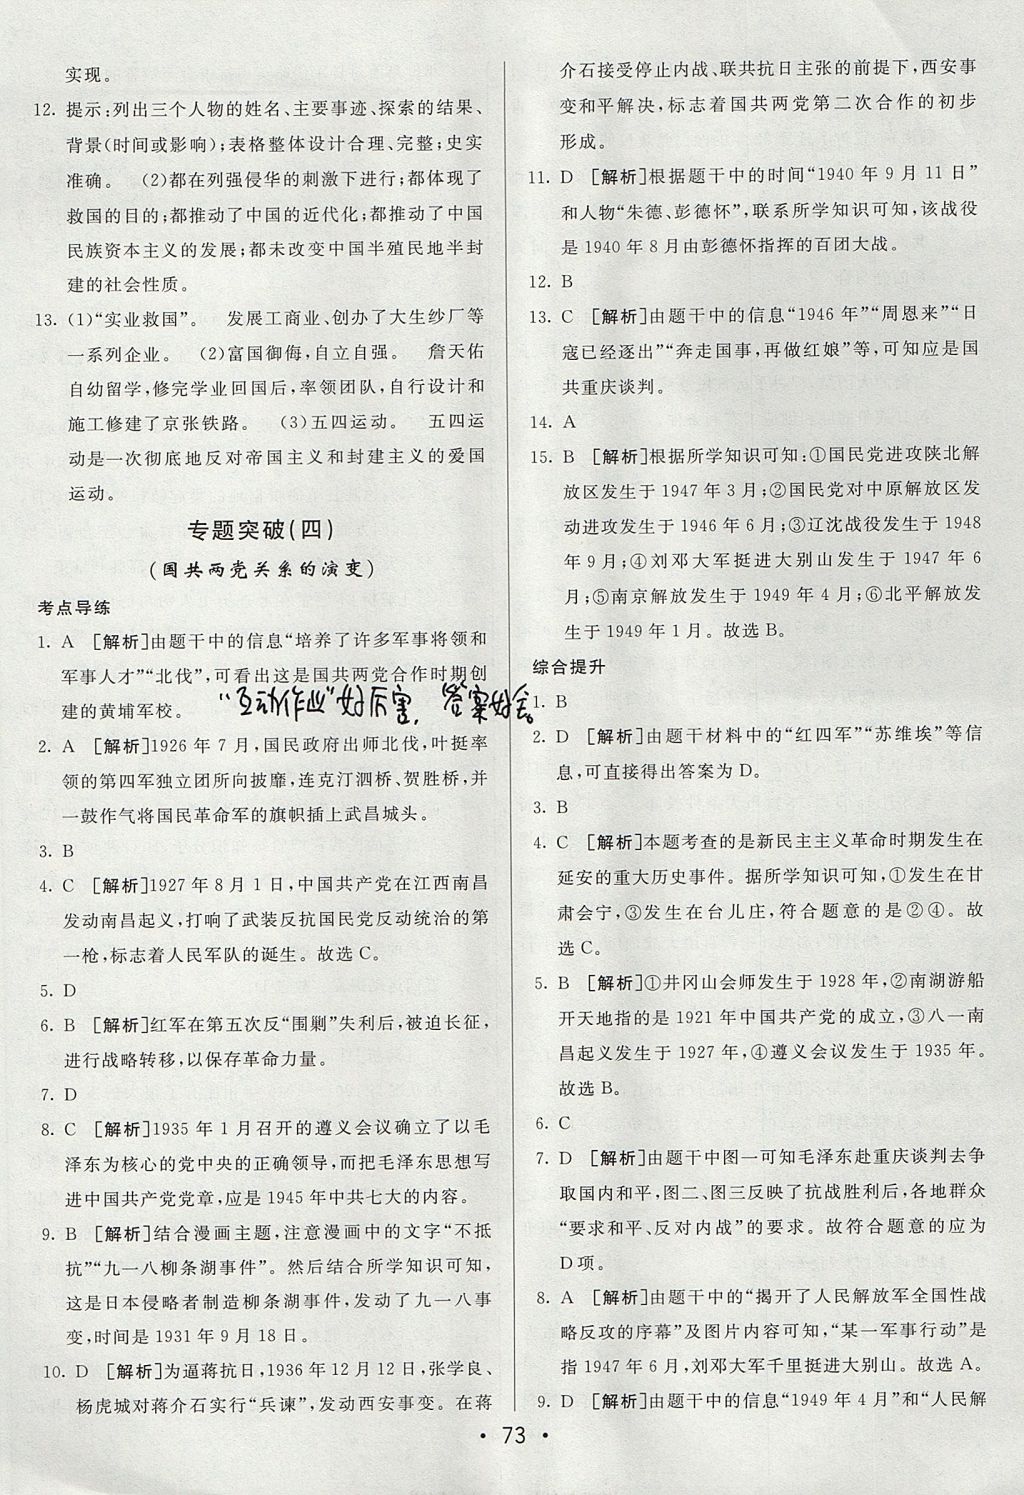 实现。
12. 提示:列出三个人物的姓名、主要事迹、探索的结果、
背景(时间或影响);表格整体设计合理、完整;史实
准确。 (2)都在列强侵华的刺激下进行;都体现了
救国的目的;都推动了中国的近代化;都推动了中国
民族资本主义的发展;都未改变中国半殖民地半封
建的社会性质。
13. (1)“实业救国”。 发展工商业、创办了大生纱厂等
一系列企业。 (2)富国御侮,自立自强。 詹天佑
自幼留学,修完学业回国后,率领团队,自行设计和
施工修建了京张铁路。 (3)五四运动。 五四运
动是一次彻底地反对帝国主义和封建主义的爱国
运动。
专题突破(四)
(国共两党关系的演变)
考点导练
1. A [解析]由题干中的信息“培养了许多军事将领和
军事人才”“北伐”,可看出这是国共两党合作时期创
建的黄埔军校。
“互动作业”好厉害,答案好全。
2. A [解析]1926 年 7 月,国民政府出师北伐,叶挺率
领的第四军独立团所向披靡,连克汀泗桥、贺胜桥,并
一鼓作气将国民革命军的旗帜插上武昌城头。
3. B
4. C [解析]1927 年 8 月 1 日,中国共产党在江西南昌
发动南昌起义,打响了武装反抗国民党反动统治的第
一枪,标志着人民军队的诞生。故选 C。
5. D
6. B [解析]红军在第五次反“围剿”失利后,被迫长征,
进行战略转移,以保存革命力量。
7. D
8. C [解析]1935 年 1 月召开的遵义会议确立了以毛
泽东为核心的党中央的正确领导,而把毛泽东思想写
进中国共产党党章,应是 1945 年中共七大的内容。
9. B [解析]结合漫画主题,注意漫画中的文字“不抵
抗”“九一八柳条湖事件”。然后结合所学知识可知,
这是日本侵略者制造柳条湖事件,发动了九一八事
变,时间是 1931 年 9 月 18 日。
10. D [解析]为逼蒋抗日,1936 年 12 月 12 日,张学良、
杨虎城对蒋介石实行“兵谏”,发动西安事变。在蒋
介石接受停止内战、联共抗日主张的前提下,西安事
变和平解决,标志着国共两党第二次合作的初步
形成。
11. D [解析]根据题干中的时间“1940 年 9 月 11 日”
和人物“朱德、彭德怀”,联系所学知识可知,该战役
是 1940 年 8 月由彭德怀指挥的百团大战。
12. B
13. C [解析]由题干中的信息“1946 年”“周恩来”“日
寇已经逐出”“奔走国事,再做红娘”等,可知应是国
共重庆谈判。
14. A
15. B [解析]根据所学知识可知:①国民党进攻陕北解
放区发生于 1947 年 3 月;②国民党对中原解放区发
动进攻发生于 1946 年 6 月;③辽沈战役发生于 1948
年 9 月;④刘邓大军挺进大别山发生于 1947 年 6
月;⑤南京解放发生于 1949 年 4 月;⑥北平解放发
生于 1949 年 1 月。故选 B。
综合提升
1. B
2. D [解析]由题干材料中的“红四军”“苏维埃”等信
息,可直接得出答案为 D。
3. B
4. C [解析]本题考查的是新民主主义革命时期发生在
延安的重大历史事件。据所学知识可知,①发生在甘
肃会宁,③发生在台儿庄,符合题意的是②④。故
选 C。
5. B [解析]①井冈山会师发生于 1928 年,②南湖游船
开天地指的是 1921 年中国共产党的成立,③八一南
昌起义发生于 1927 年,④遵义会议发生于 1935 年。
故选 B。
6. C
7. D [解析]由题干中图一可知毛泽东赴重庆谈判去争
取国内和平,图二、图三反映了抗战胜利后,各地群众
“要求和平、反对内战”的要求。故符合题意的应为
D 项。
8. A [解析]由题干中的“揭开了人民解放军全国性战
略反攻的序幕”及图片内容可知,“某一军事行动”是
指 1947 年 6 月,刘邓大军千里挺进大别山。故选 A。
9. D [解析]由题干中的信息“1949 年 4 月”和“人民解
• 73 •